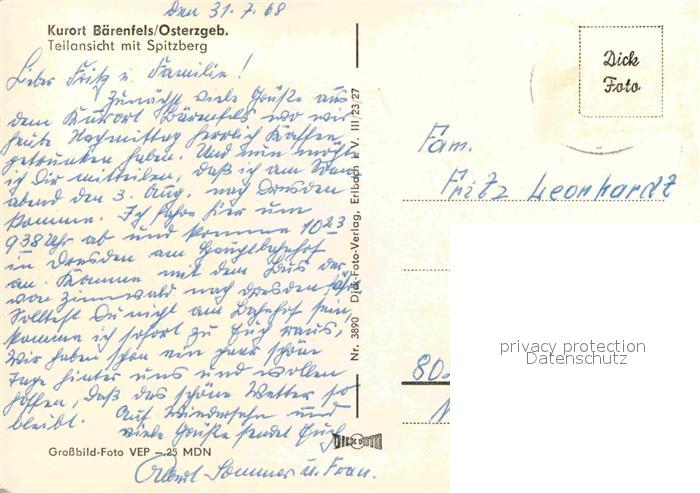 den 31.7.68
Kurort Bärenfels/Osterzgeb.
Teilansicht mit Spitzberg
Lieber Fritz u. Familie!
Zunächst viele Grüße aus
dem Kurort Bärenfels wo wir
heute Nachmittag herrlich Kaffee
getrunken haben. Und nun möcht
ich Dir mitteilen, daß ich am Sonn
abend den 3. Aug. nach Dresden
komme. Ich fahre hier um
9 38 Uhr ab und komme 10 23
in Dresden am Hauptbahnhof
an. Komme mit dem Bus der
von Zinnwald nach Dresden fährt
Solltest Du nicht am Bahnhof sein,
komme ich sofort zu Euch raus,
Wir haben schon ein paar schöne
Tage hinter uns und wollen
hoffen, daß das schöne Wetter so
bleibt. Auf Wiedersehn und
viele Grüße sendet Euch
Sommer u. Frau.
Großbild-Foto VEP –.25 MDN
Nr. 3890 Dick-Foto-Verlag, Erlbach i. V. III/23/27
DICK FOTO
Dick
Foto
Fam.
Fritz Leonhardt
80
privacy protection
Datenschutz